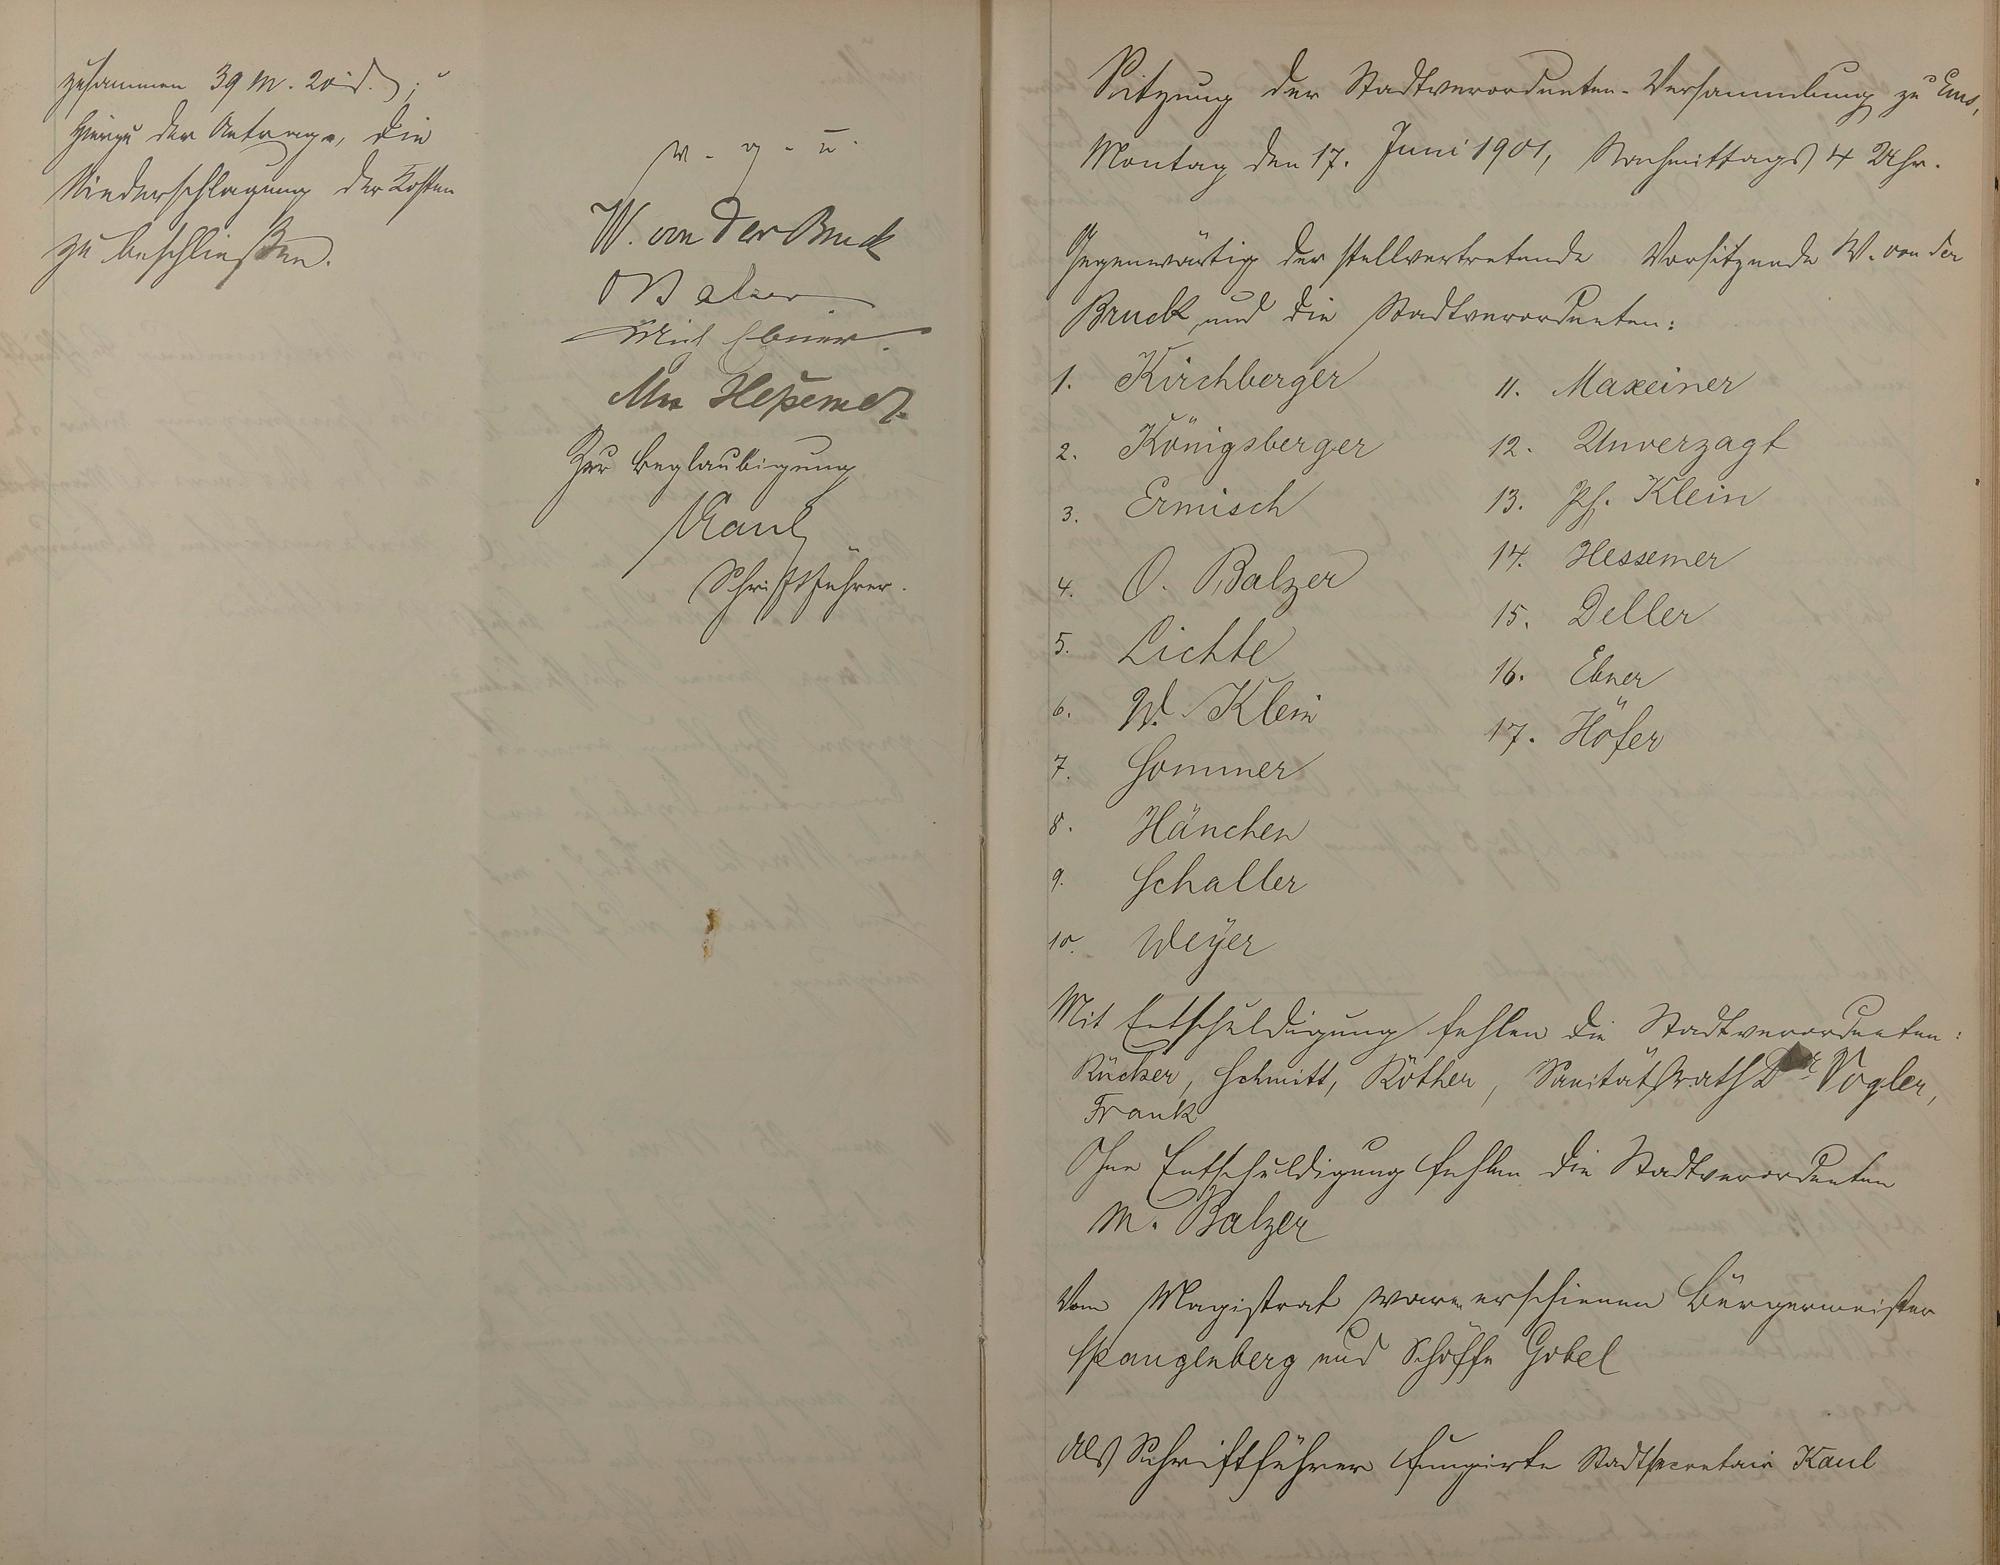 zusammen 39 M. 20 d.;
hierzu der Antrage, die
Niederschlagung der Kosten
zu beschließen.
v. g. u.
W. von der Bruck
O Balzer
Mich Ebner.
Hessemer
Zur Beglaubigung
Kaul
Schriftführer.
Sitzung der Stadtverordneten-Versammlung zu Ems,
Montag den 17. Juni 1901, Nachmittags 4 Uhr.
Gegenwärtig der stellvertretende Vorsitzende W. von der
Bruck und die Stadtverordneten:
1. Kirchberger
2. Königsberger
3. Ermisch
4. O. Balzer
5. Lichte
6. W. Klein
7. Sommer
8. Hänchen
9. Schaller
10. Weyer
11. Maxeiner
12. Unverzagt
13. Ph. Klein
14. Hessemer
15. Deller
16. Ebner
17. Höfer
Mit Entschuldigung fehlen die Stadtverordneten:
Rücker, Schmitt, Röther, Sanitätsrath Dr Vogler,
Frank
Ohne Entschuldigung fehlen die Stadtverordneten
M. Balzer
Vom Magistrat waren erschienen Bürgermeister
Spangenberg und Schöffe Gobel
Als Schriftführer fungirte Stadtsecretair Kaul